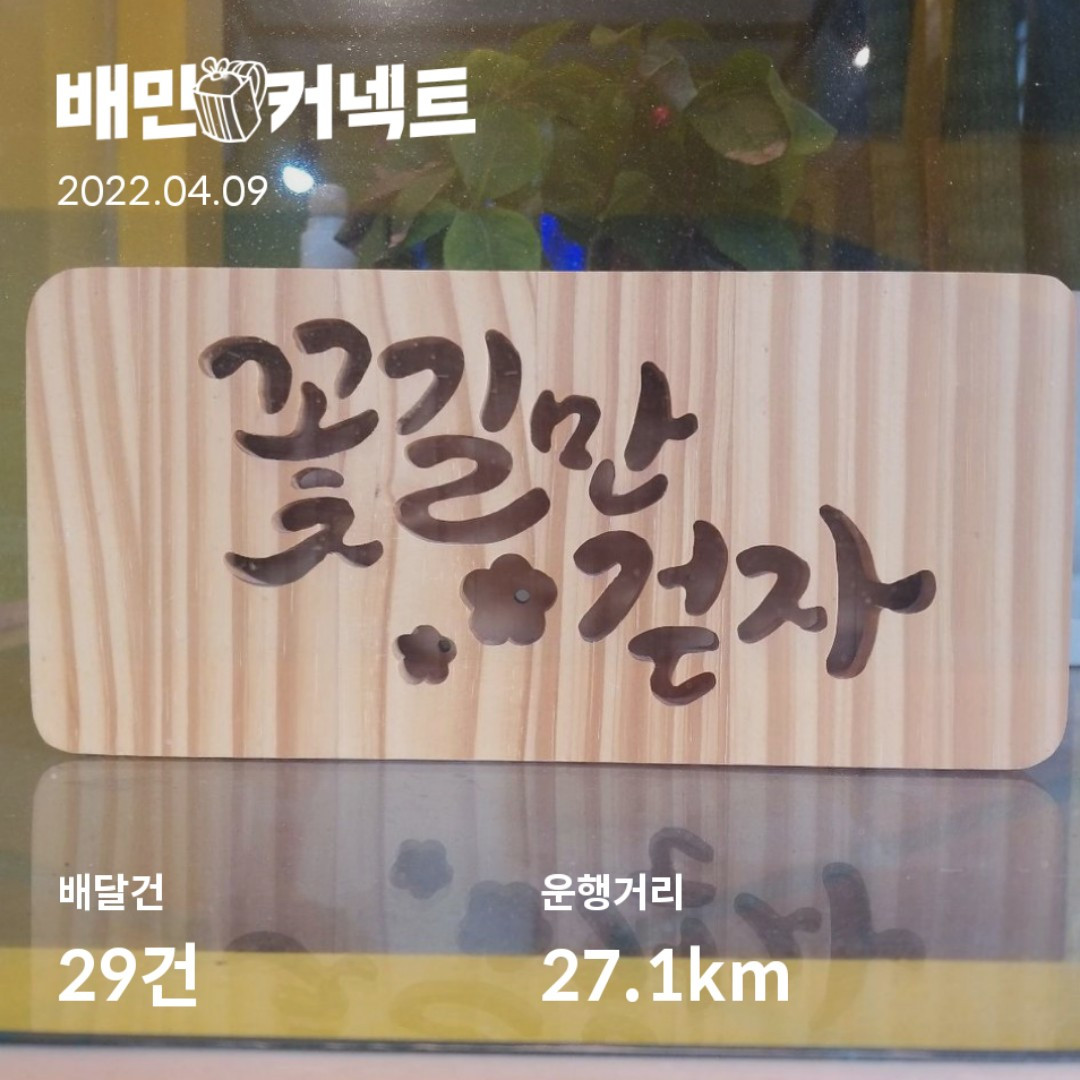 배민커넥트
2022.04.09
꽃길만
걷자
배달건
운행거리
29건
27.1km